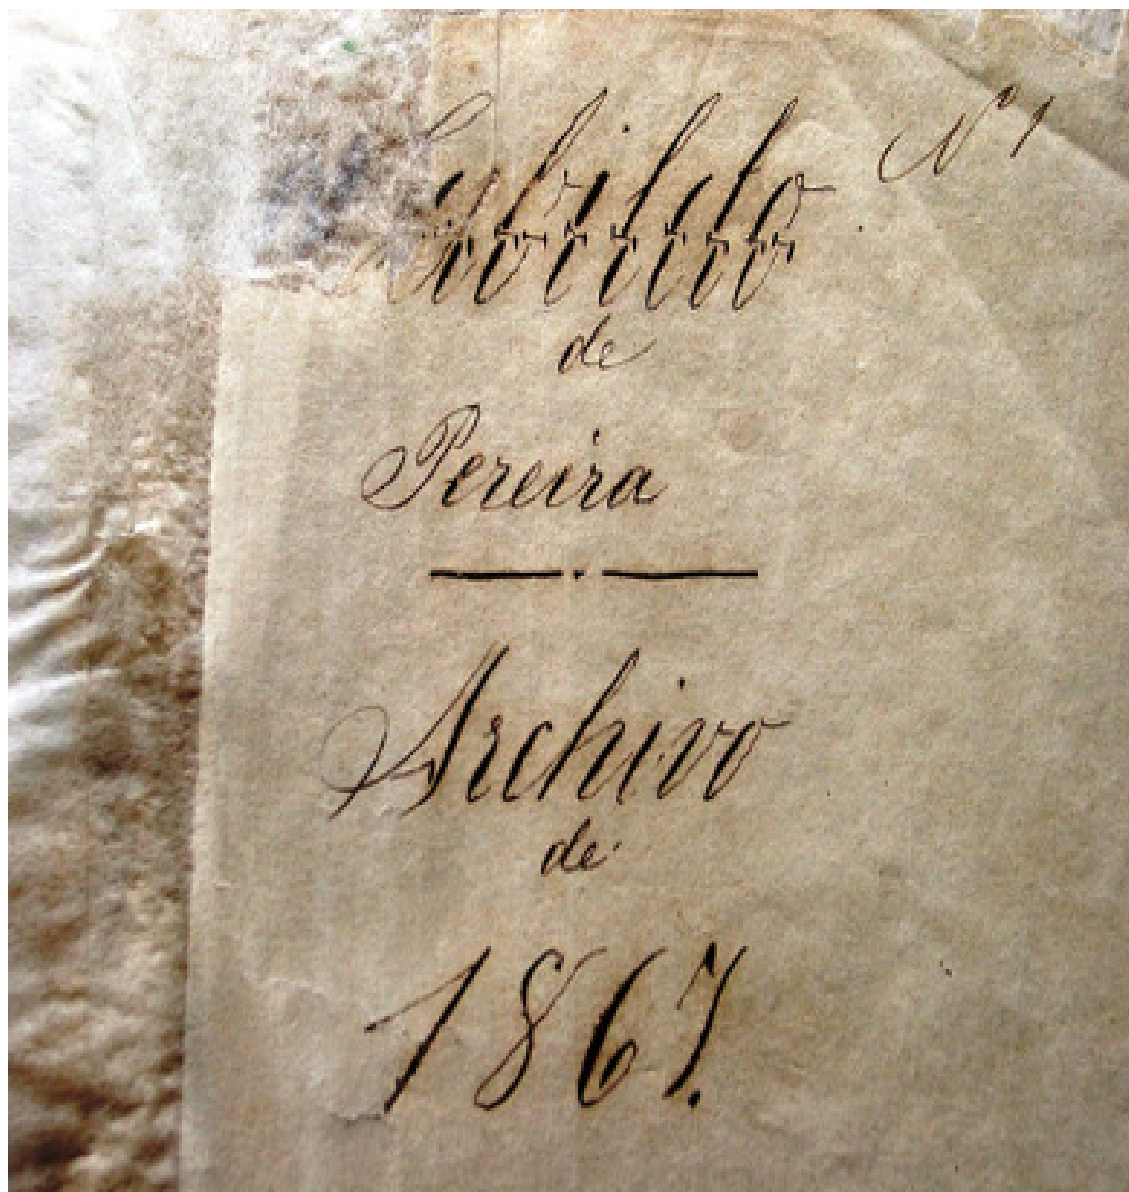 Nº 1
Cabildo
de
Pereira
Archivo
de
1867.